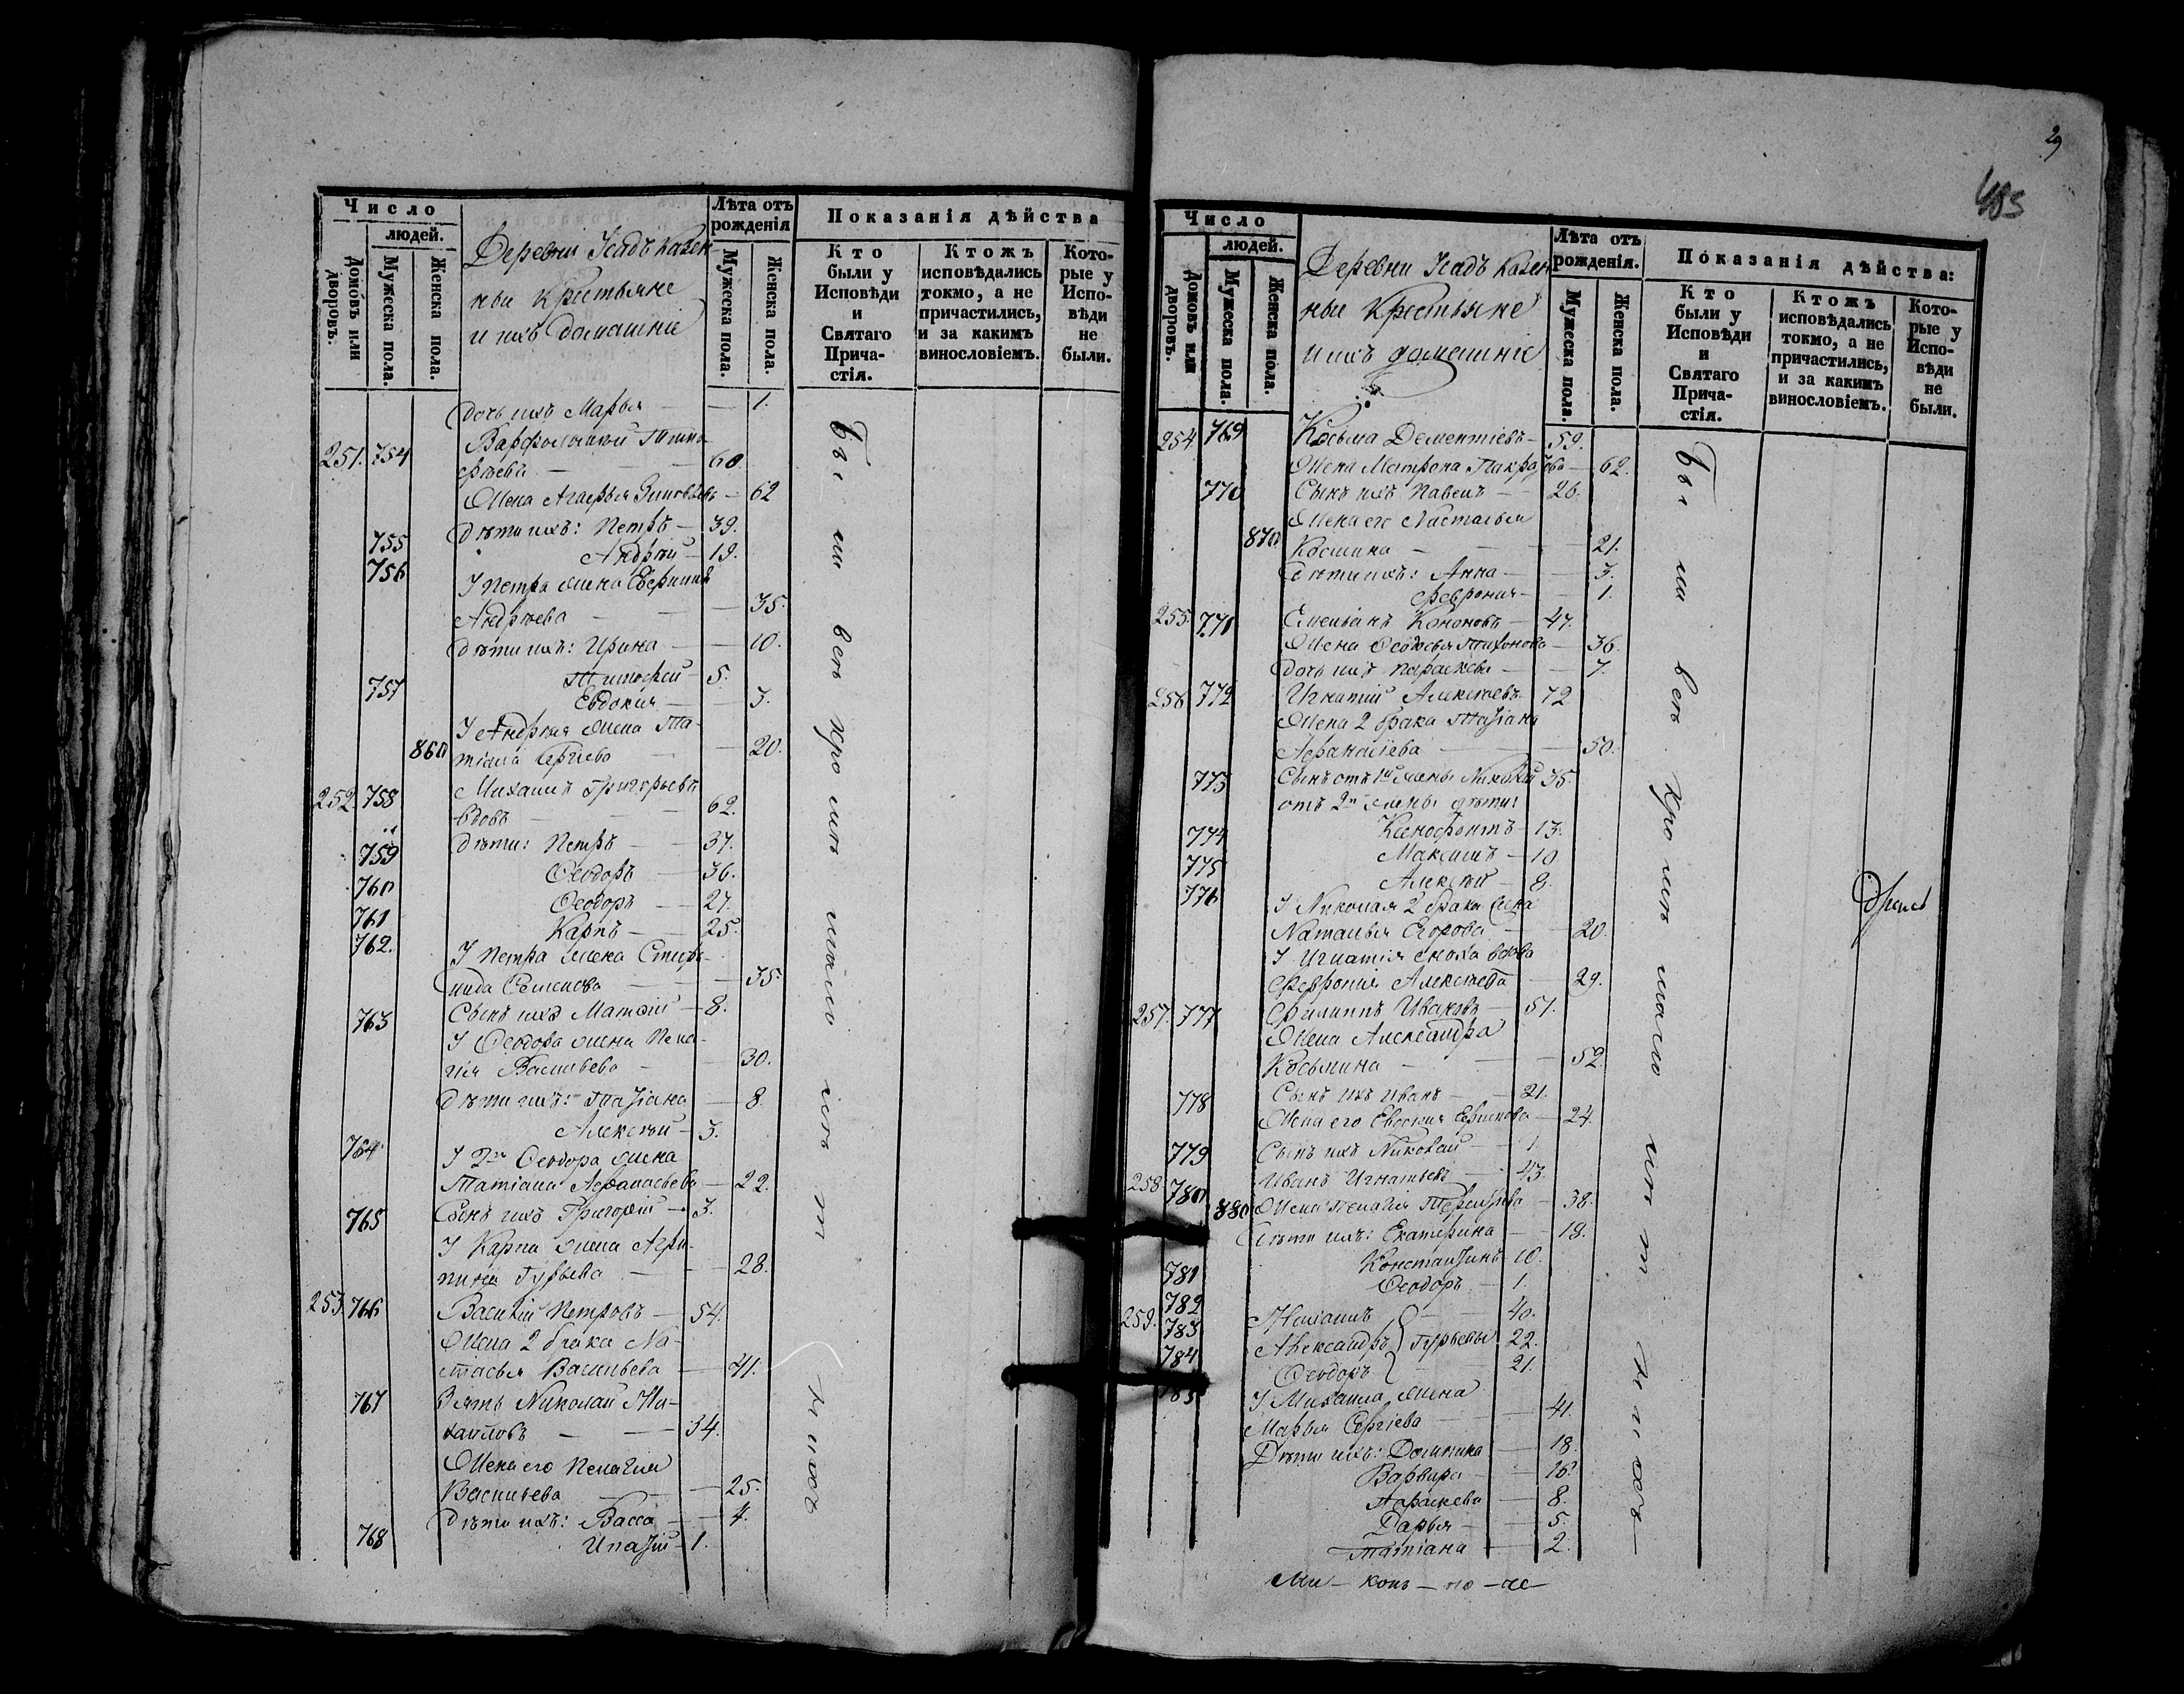 Число
людей.
Домовъ или дворовъ.
Мужеска пола.
Женска пола.
Деревни Исадъ казен-
ныи крестьяне
и ихъ домашніе
Лѣта отъ рожденія
Мужеска пола.
Женска пола.
Показанія дѣйства
Кто были у Исповѣди и Святаго Причастія.
Ктожъ исповѣдались токмо, а не причастились, и за какимъ винословіемъ.
Которые у Исповѣди не были.
Дочь ихъ Марья — — 1.
251. 754 Варфоломей Тимо-
фѣевъ — — — 60.
Жена Агафья Зиновьева — 62
755 Дѣти ихъ: Петръ — 39.
756 Андрей — 19.
У Петра жена
Андреева — — — 35.
Дѣти ихъ: Ирина — — 10.
757 Тимофей — 5.
Евдокия — — 3.
У Андрея жена Та-
860 тіана Сергіева — — 20.
252. 758 Михаилъ Григорьевъ
вдовъ — — — 62.
759 Дѣти: Петръ — — 37.
760 Ѳеодоръ — 36.
761 Ѳеодоръ — — 27.
762. Карпъ — — 25.
У Петра жена Степа-
нида Семенова — — — 35.
763 Сынъ ихъ Матѳій — 8.
У Ѳеодора жена Пела-
гія Васильева — — 30.
Дѣти ихъ: Татіана — 8.
764 Алексѣй — 3.
У 2го Ѳеодора жена
Татіана Аѳанасьева — 22.
765 Сынъ ихъ Григорій — 3.
У Карпа жена Агри-
пина Гурьева — — — 28.
253. 766 Василій Петровъ — 54.
Жена 2 брака На-
стасья Васильева — 41.
767 Зять Николай Ми-
хаиловъ — — 34.
Жена его Пелагия
Васильева — — — 25.
Дѣти ихъ: Васса — — 4.
768 Ипатій — 1.
Были всѣ кромѣ мало лѣт нихъ
29
403
Число
людей.
Домовъ или дворовъ.
Мужеска пола.
Женска пола.
Деревни Исадъ казен
ные крестьяне
и ихъ домашніе
Лѣта отъ рожденія.
Мужеска пола.
Женска пола.
Показанія дѣйства:
Кто были у Исповѣди и Святаго Причастія.
Ктожъ исповѣдались токмо, а не причастились, и за какимъ винословіемъ.
Которые у Исповѣди не были.
254. 769 Косьма Дементіевъ — 59.
Жена Матрона — 62.
770 Сынъ ихъ Павелъ — — 26.
Жена его Настасья
870 Космина — — — 21.
Дѣти ихъ: Анна — — 3.
Феврония — — 1.
255. 771 Емельянъ Кононовъ — 47.
Жена Ѳеодосья Тихонова — 36.
Дочь ихъ Параскева — — 7.
256. 772 Игнатій Алексѣевъ 72
Жена 2 брака Татіана
Аѳанасіева — — — 50.
773 Сынъ отъ 1й жены Николай 35.
отъ 2й жены дѣти:
774 Ксенофонтъ — 13.
775 Максимъ — 10
776 Алексѣй — 8.
У Николая 2 брака жена
Наталья Егорова — — 20.
У Игнатія сноха вдова
Февронія Алексѣева — 29.
257. 777 Филиппъ Ивановъ — 51.
Жена Александра
Косьмина — — — 52.
778 Сынъ ихъ Иванъ — 21.
Жена его — 24.
779 Сынъ ихъ Николай — 1.
258 780 Иванъ Игнатьевъ — 43.
880 Жена Пелагія — 38.
Дѣти ихъ: Екатерина — — 18.
781 Константинъ 10.
782 Ѳеодоръ — 1.
259. 783 Михаилъ — — 40.
784 Александръ Гурьевы 22.
785 Ѳеодоръ — — 21.
У Михаила жена
Марья Сергіева — — 41.
Дѣти ихъ: Домникиа — 18.
Варвара — — 16.
Параскева — 8.
Дарья — — 5.
Татіана — 2.
Были всѣ кромѣ мало лѣт нихъ